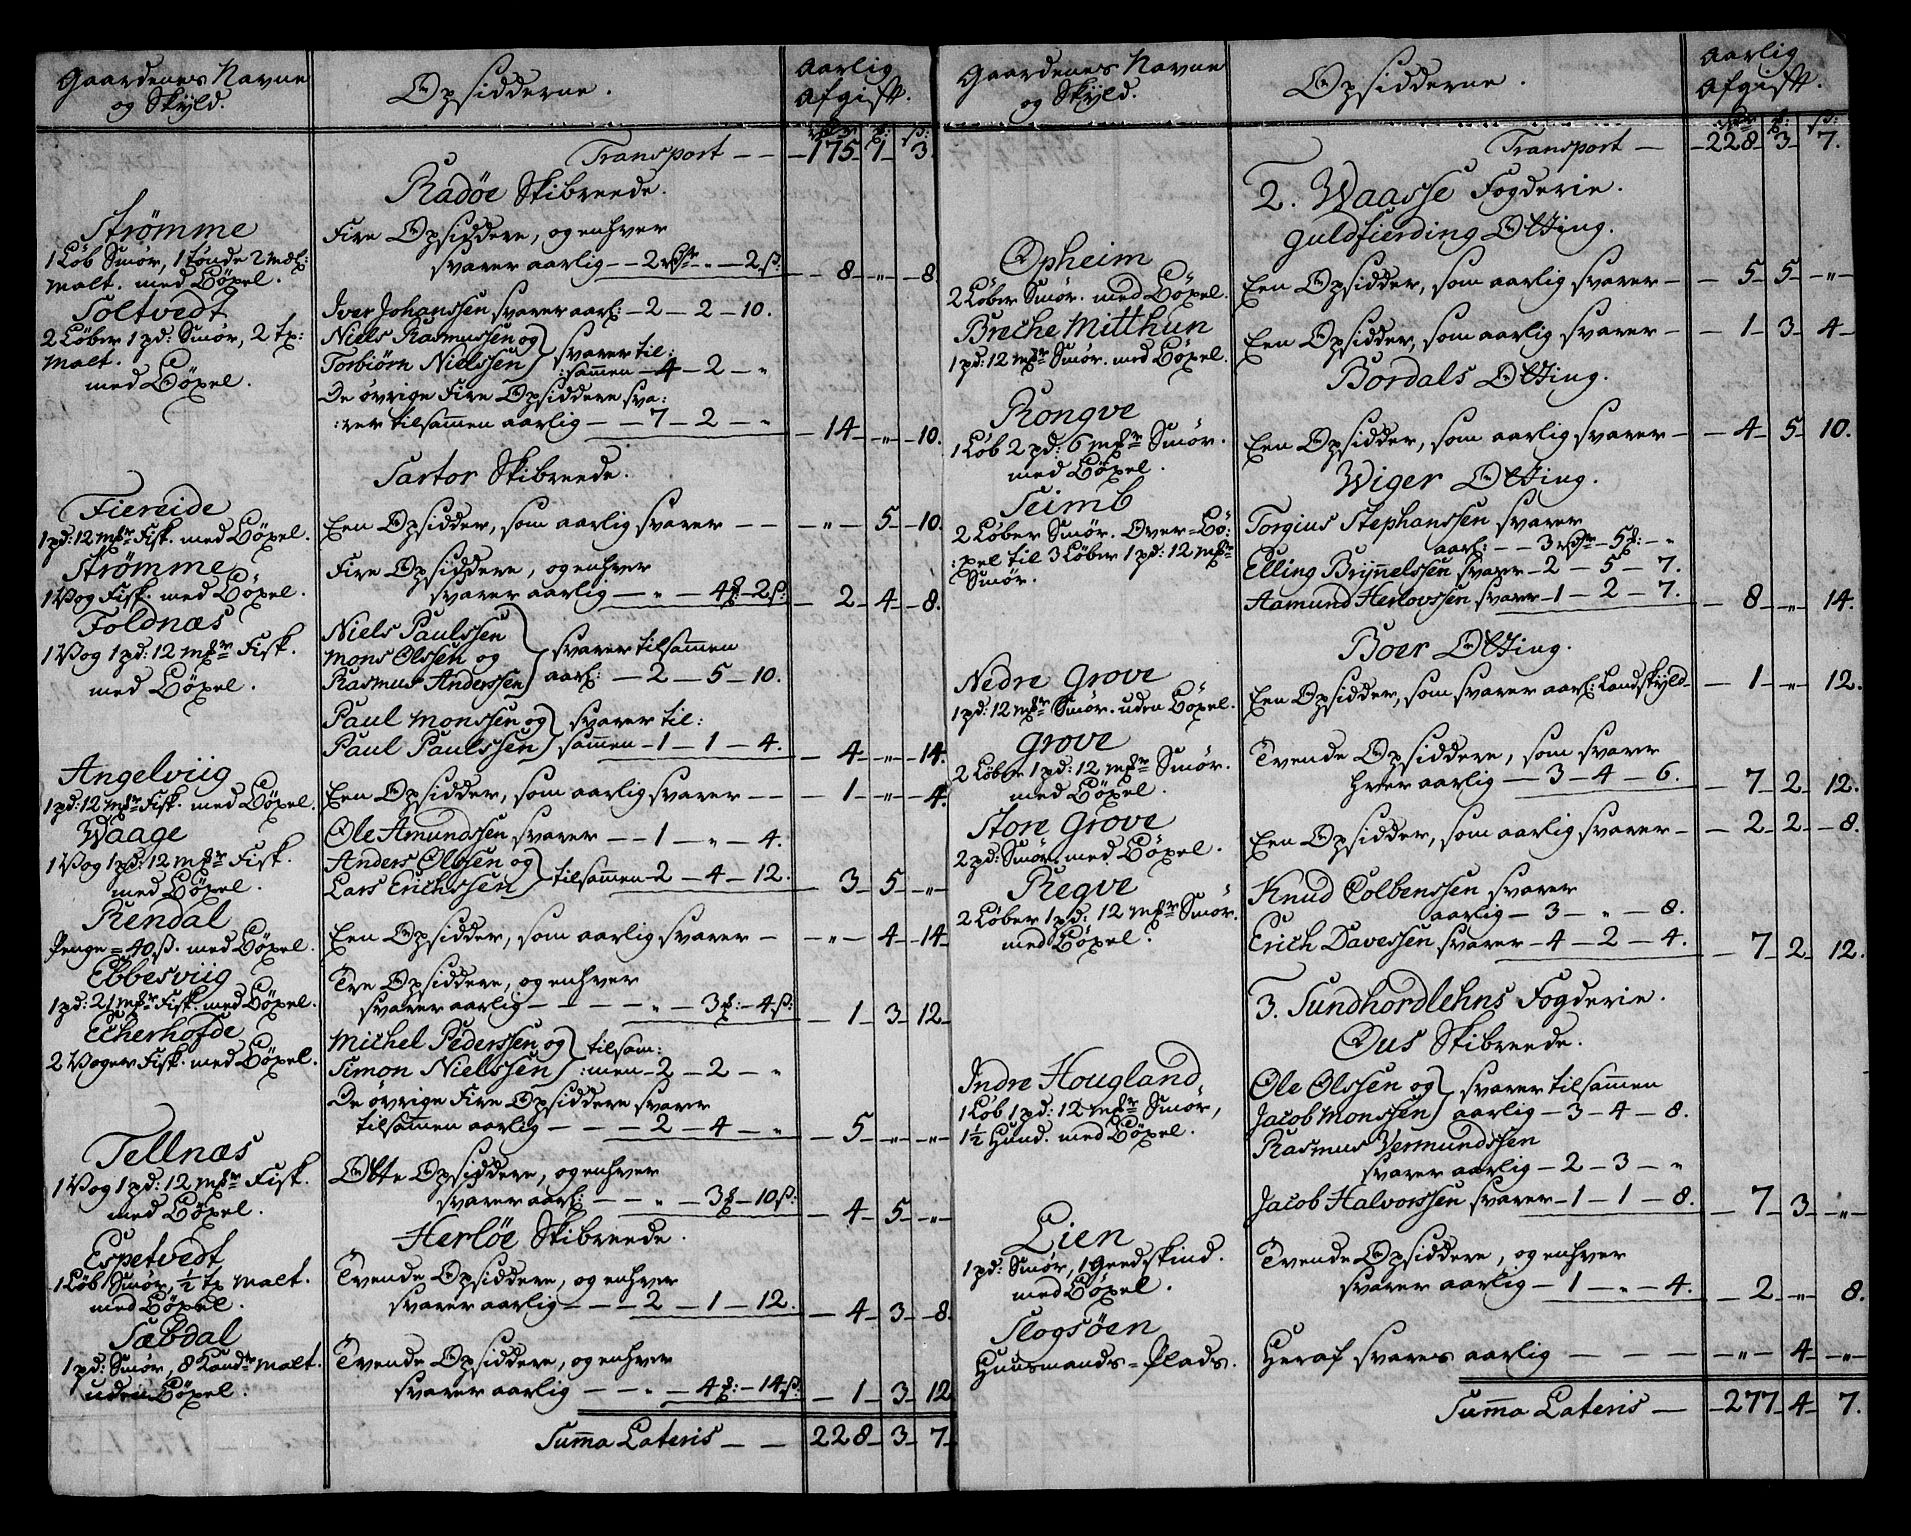 Gaardenes Navne
og Skyld.
Opsidderne.
Aarlig
Afgift.
rdlr ꝶ: ß:
Transport — — 175 - 1 - 3.
Radöe Skibreede.
Strømme
1 Löb Smör, 1 tönde 2 Mæl:
Malt. med Böxel.
Fire Opsiddere, og enhver
svarer aarlig — 2 rdr „ - 2 ß: — 8 - „ - 8
Soltvedt
2 Löber 1 pd: Smör, 2 tr:
Malt.
med Böxel.
Iver Johanssen svarer aarl: - 2 - 2 - 10.
Niels Rasmussen og
Torbiörn Nielssen svarer til:
:sammen - 4 - 2 - „
De övrige Fire Opsiddere sva:
:rer tilsammen aarlig — 7 - 2 - „ — 14 - „ - 10.
Sartor Skibreede.
Fiereide
1 pd: 12 mkr Fisk. med Böxel.
Een Opsidder, som aarlig svarer — — „ - 5 - 10.
Strømme
1 Vog Fisk. med Böxel.
Fire Opsiddere, og enhver
svarer aarlig — „ - 4 ꝶ - 2 ß: — 2 - 4 - 8.
Foldnæs
1 Vog 1 pd: 12 mkr Fisk.
med Böxel.
Niels Paulssen
Mons Olssen og
Rasmus Anderssen svarer tilsammen
aarl: - 2 - 5 - 10.
Paul Monssen og
Paul Paulssen svarer til:
sammen - 1 - 1 - 4. — 4 - „ - 14.
Angelviig
1 pd: 12 mkr Fisk. med Böxel.
Een Opsidder, som aarlig svarer — — 1 - „ - 4.
Waage
1 Vog 1 pd: 12 mkr Fisk.
med Böxel.
Ole Amundssen svarer — 1 - „ - 4.
Anders Olssen og
Lars Erichssen tilsammen - 2 - 4 - 12. — 3 - 5 - „
Rendal
Penge = 40. ß. med Böxel.
Een Opsidder, som aarlig svarer — „ - 4 - 14.
Ebbesviig
1 pd: 21 mkr Fisk. med Böxel.
Tre Opsiddere, og enhver
svarer aarlig — — „ - 3 ꝶ - 4 ß: — 1 - 3 - 12.
Echerhofde
2 Voger Fisk. med Böxel.
Michel Pederssen og
Simon Nielssen tilsam:
:men - 2 - 2 - „
De övrige Fire Opsiddere svarer
tilsammen aarlig — — 2 - 4 - „ — 5 - „ - „
Tellnæs
1 Vog 1 pd: 12 mkr Fisk.
med Böxel.
Otte Opsiddere, og enhver
svarer aarl: — „ - 3 ꝶ - 10 ß: — 4 - 5 - „
Herløe Skibreede.
Espetvedt
1 Löb Smör, ½ tr Malt.
med Böxel.
Tvende Opsiddere, og enhver
svarer aarlig — — 2 - 1 - 12. — 4 - 3 - 8.
Sæbdal
1 pd: Smör, 8 Kander Malt.
uden Böxel.
Tvende Opsiddere, og enhver
svarer aarlig — — „ - 4 ꝶ: - 14 ß: — 1 - 3 - 12
Suma Lateris — — 228 - 3 - 7
Gaardenes Navne
og Skyld.
Opsidderne.
Aarlig
Afgift.
rdlr ꝶ: ß:
Transport — 228 - 3 - 7.
2. Waasse Fogderie.
Guldfierding Otting.
Opheim
2 Löber Smör. med Böxel.
Een Opsidder, som aarlig svarer — 5 - 5 - „
Breche Mitthun
1 pd: 12 mkr Smör. med Böxel.
Een Opsidder, som aarlig svarer — 1 - 3 - 4
Bordals Otting.
Rongve
1 Löb 2 pd: 6 mkr Smör.
med Böxel.
Een Opsidder, som aarlig svarer — 4 - 5 - 10.
Wiger Otting.
Seimb
2 Löber Smör. Over-Bö:
:xel til 3 Löber 1 pd: 12 mkr
Smör.
Torgius Stephanssen svarer
aarl: — 3 rdr - 5 ꝶ: - „
Elling Brynelssen svarer - 2 - 5 - 7.
Aamund Herlovssen svarer - 1 - 2 - 7. — 8 - „ - 14.
Boer Otting.
Nedre Grove
1 pd: 12 mkr Smör. uden Böxel.
Een Opsidder, som svarer aarl: Landskyld — 1 - „ - 12.
Grove
2 Löber 1 pd: 12 mkr Smör.
med Böxel.
Tvende Opsiddere, som svarer
hver aarlig — 3 - 4 - 6. — 7 - 2 - 12.
Store Grove
2 pd: Smör. med Böxel.
Een Opsidder, som aarlig svarer — 2 - 2 - 8.
Reqve
2 Löber 1 pd: 12 mkr Smör.
med Böxel.
Knud Colbenssen svarer
aarlig - 3 - „ - 8.
Erich Davessen svarer - 4 - 2 - 4. — 7 - 2 - 12.
3. Sundhordlehns Fogderie.
Ous Skibreede.
Indre Hougland,
1 Löb 1 pd: 12 mkr Smör,
1½ Huud. med Böxel.
Ole Olssen og
Jacob Monssen svarer tilsammen
aarlig - 3 - 4 - 8.
Rasmus Vermundssen
svarer aarlig - 2 - 3 - „
Jacob Halvorssen svarer - 1 - 1 - 8. — 7 - 3 - „
Lien
1 pd: Smör, 1 Geedskind.
med Böxel.
Tvende Opsiddere, og enhver
svarer aarlig - 1 - „ - 4. — 2 - „ - 8.
Slogsöen
Huusmands-Plads.
Heraf svares aarlig — — — „ - 4 - „
Suma Lateris — 277 - 4 - 7.